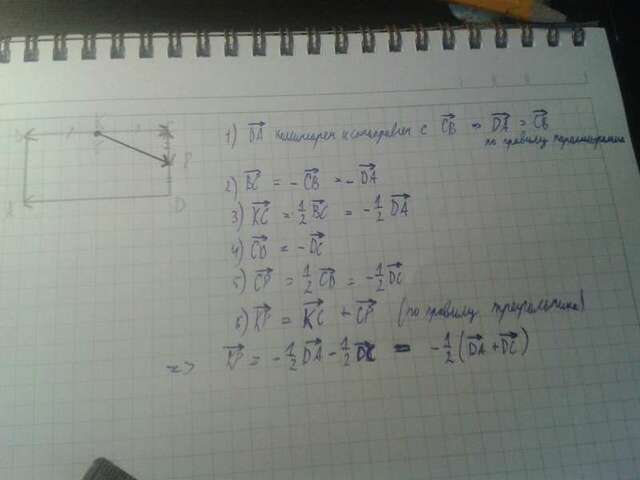 1) DA коллинеарен и сонаправлен с CB ⇒ DA = CB
по правилу параллелограмма
2) BC = -CB = -DA
3) KC = 1/2 BC = -1/2 DA
4) CD = -DC
5) CP = 1/2 CD = -1/2 DC
6) KP = KC + CP (по правилу треугольника)
=> KP = -1/2 DA - 1/2 DC = -1/2 (DA + DC)
K
P
D